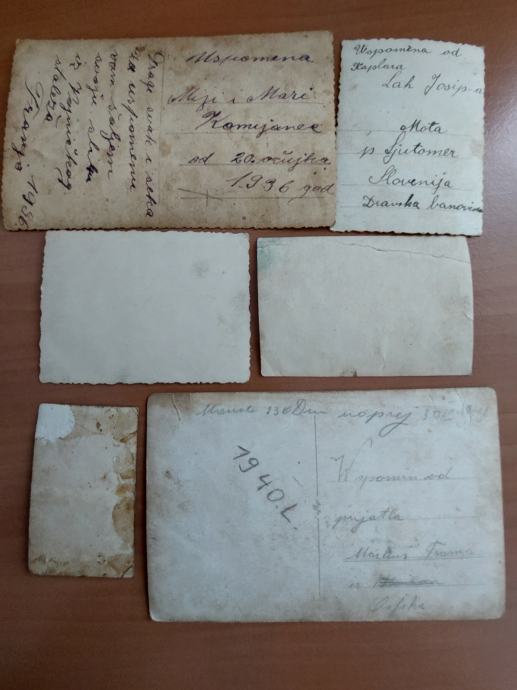 Uspomena
Miji i Mari
Komijanec
od 20. ožujka
1936 god
Dragi svak i seka
za uspomenu
vam šaljem
svoju sliku
iz
Franjo 1936
Uspomena od
Kaplara
Lah Josip-a
Mota
p Ljutomer
Slovenija
Dravska banovina
naprej
1940. L.
Wspomin od
prijatla
Osjeka